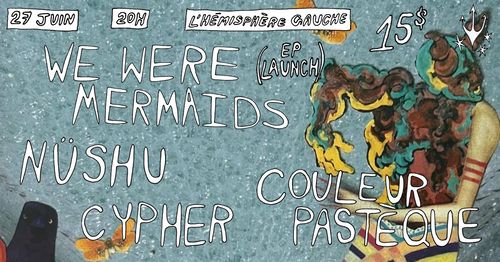 27 JUIN
20H
L'HÉMISPHÈRE GAUCHE
15$
WE WERE
MERMAIDS
(EP
LAUNCH)
NÜSHU
CYPHER
COULEUR
PASTÈQUE